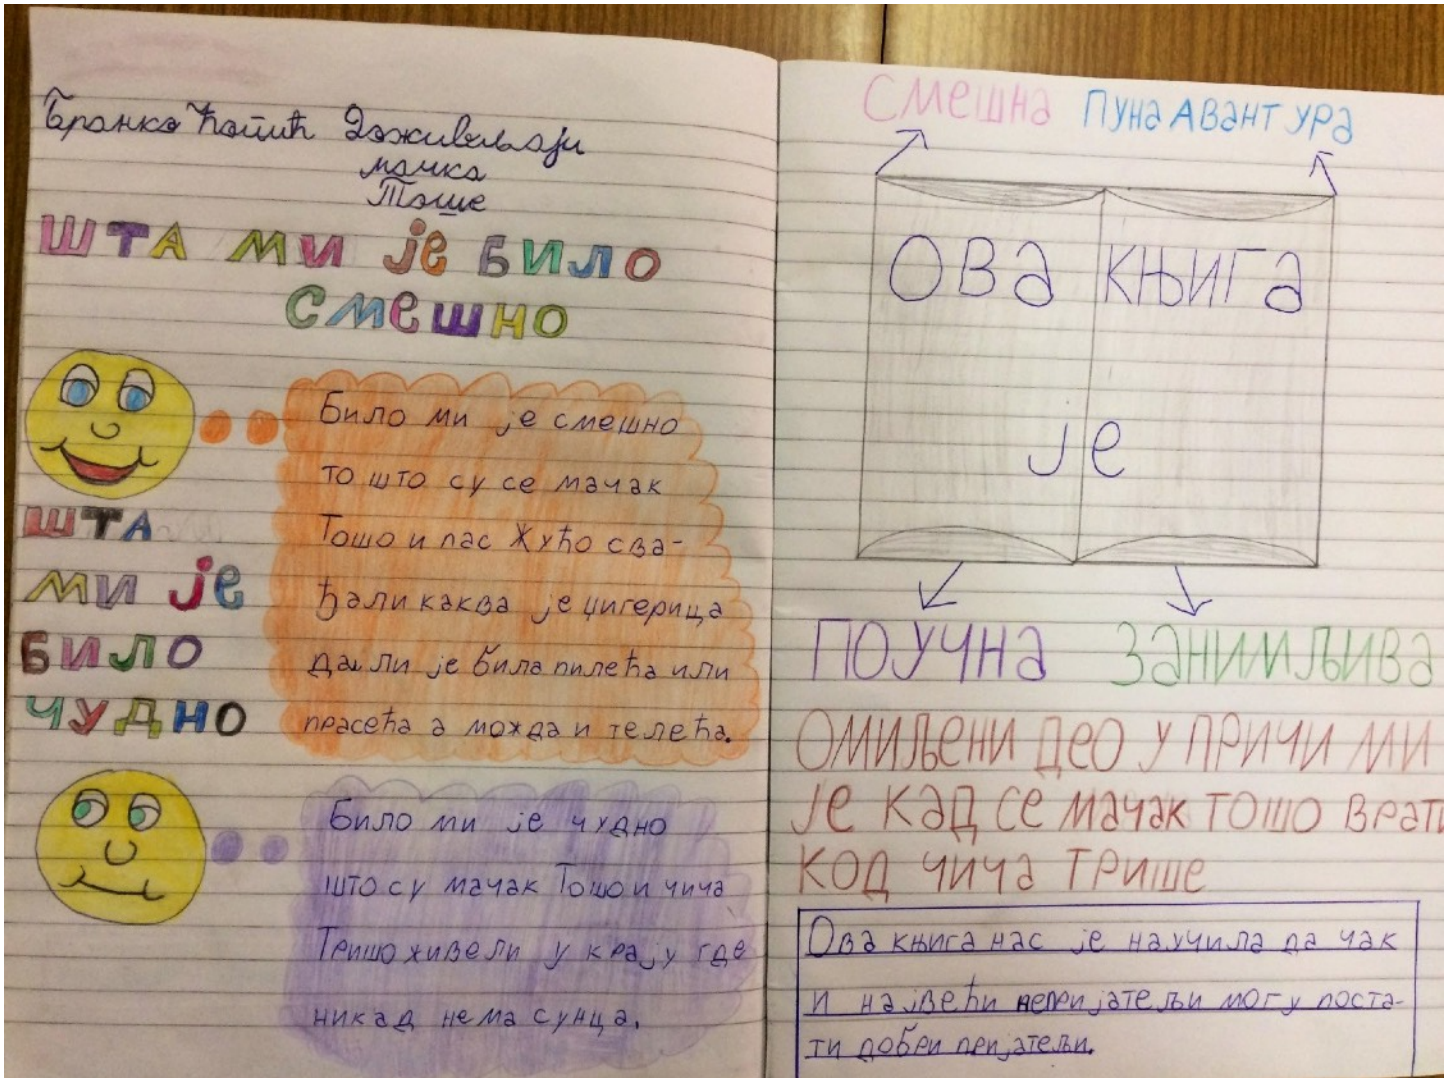 Бранко Ћопић Доживљаји
мачка
Тоше
ШТА МИ ЈЕ БИЛО
СМЕШНО
Било ми је смешно
то што су се мачак
Тошо и пас Жућо сва-
ђали каква је џигерица
да ли је била пилећа или
прасећа а можда и телећа.
ШТА
МИ ЈЕ
БИЛО
ЧУДНО
Било ми је чудно
што су мачак Тошо и чича
Тришо живели у крају где
никад нема сунца.
СМЕШНА ПУНА АВАНТУРА
ОВА КЊИГА
ЈЕ
ПОУЧНА ЗАНИМЉИВА
ОМИЉЕНИ ДЕО У ПРИЧИ МИ
ЈЕ КАД СЕ МАЧАК ТОШО ВРАТИ
КОД ЧИЧА ТРИШЕ
Ова књига нас је научила да чак
и највећи непријатељи могу поста-
ти добри пријатељи.